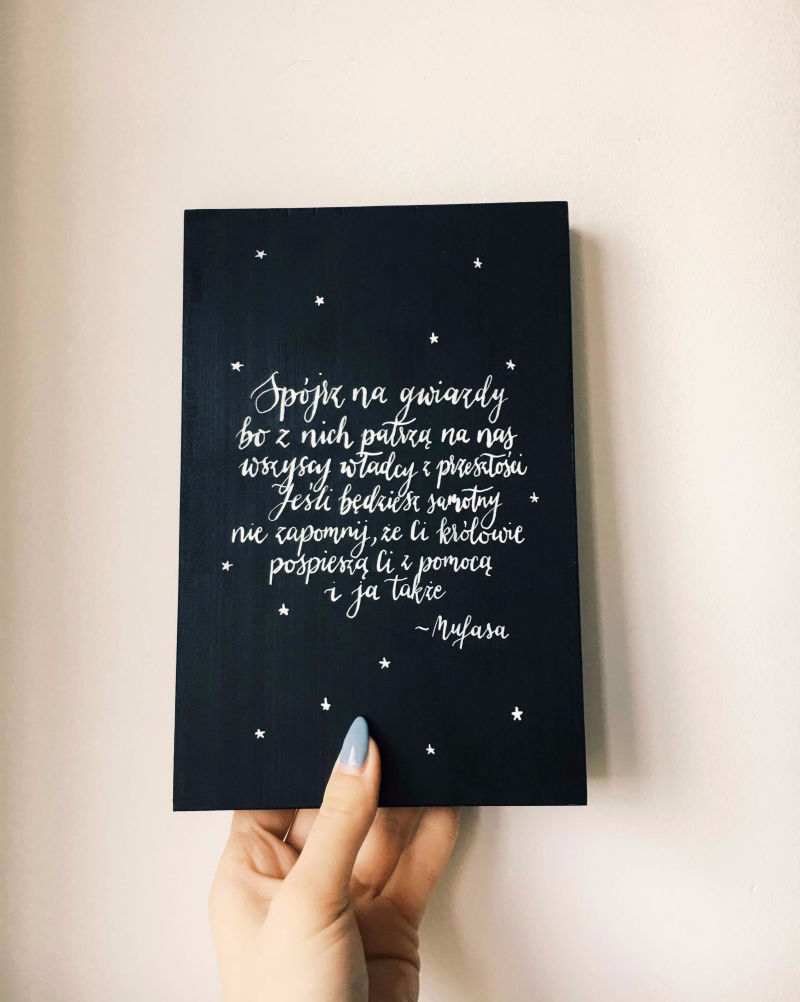 Spójrz na gwiazdy
bo z nich patrzą na nas
wszyscy władcy z przeszłości
Jeśli będziesz samotny
nie zapomnij, że Ci królowie
pospieszą Ci z pomocą
i ja także
~Mufasa